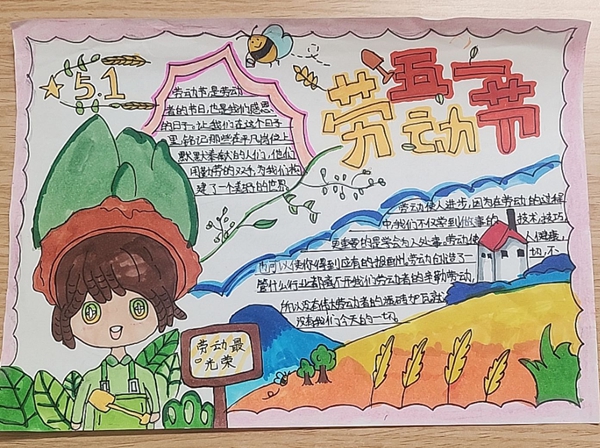 5.1
五一
劳动节
劳动节是劳动
者的节日,也是我们感恩
的日子:让我们在这个日子
里,铭记那些在平凡岗位上
默默奉献的人们,他们
用勤劳的双手,为我们构
建了一个美好的世界
劳动使人进步,因为在劳动的过程
中,我们不仅学到做事的技术,技巧,
更重要的是学会为人处事,劳动使人健康,
也可以使你得到应有的报酬
管什么行业都离不开我们劳动者的辛勤劳动,
所以没有伟大劳动者的
没有我们今天的一切。
劳动最
光荣